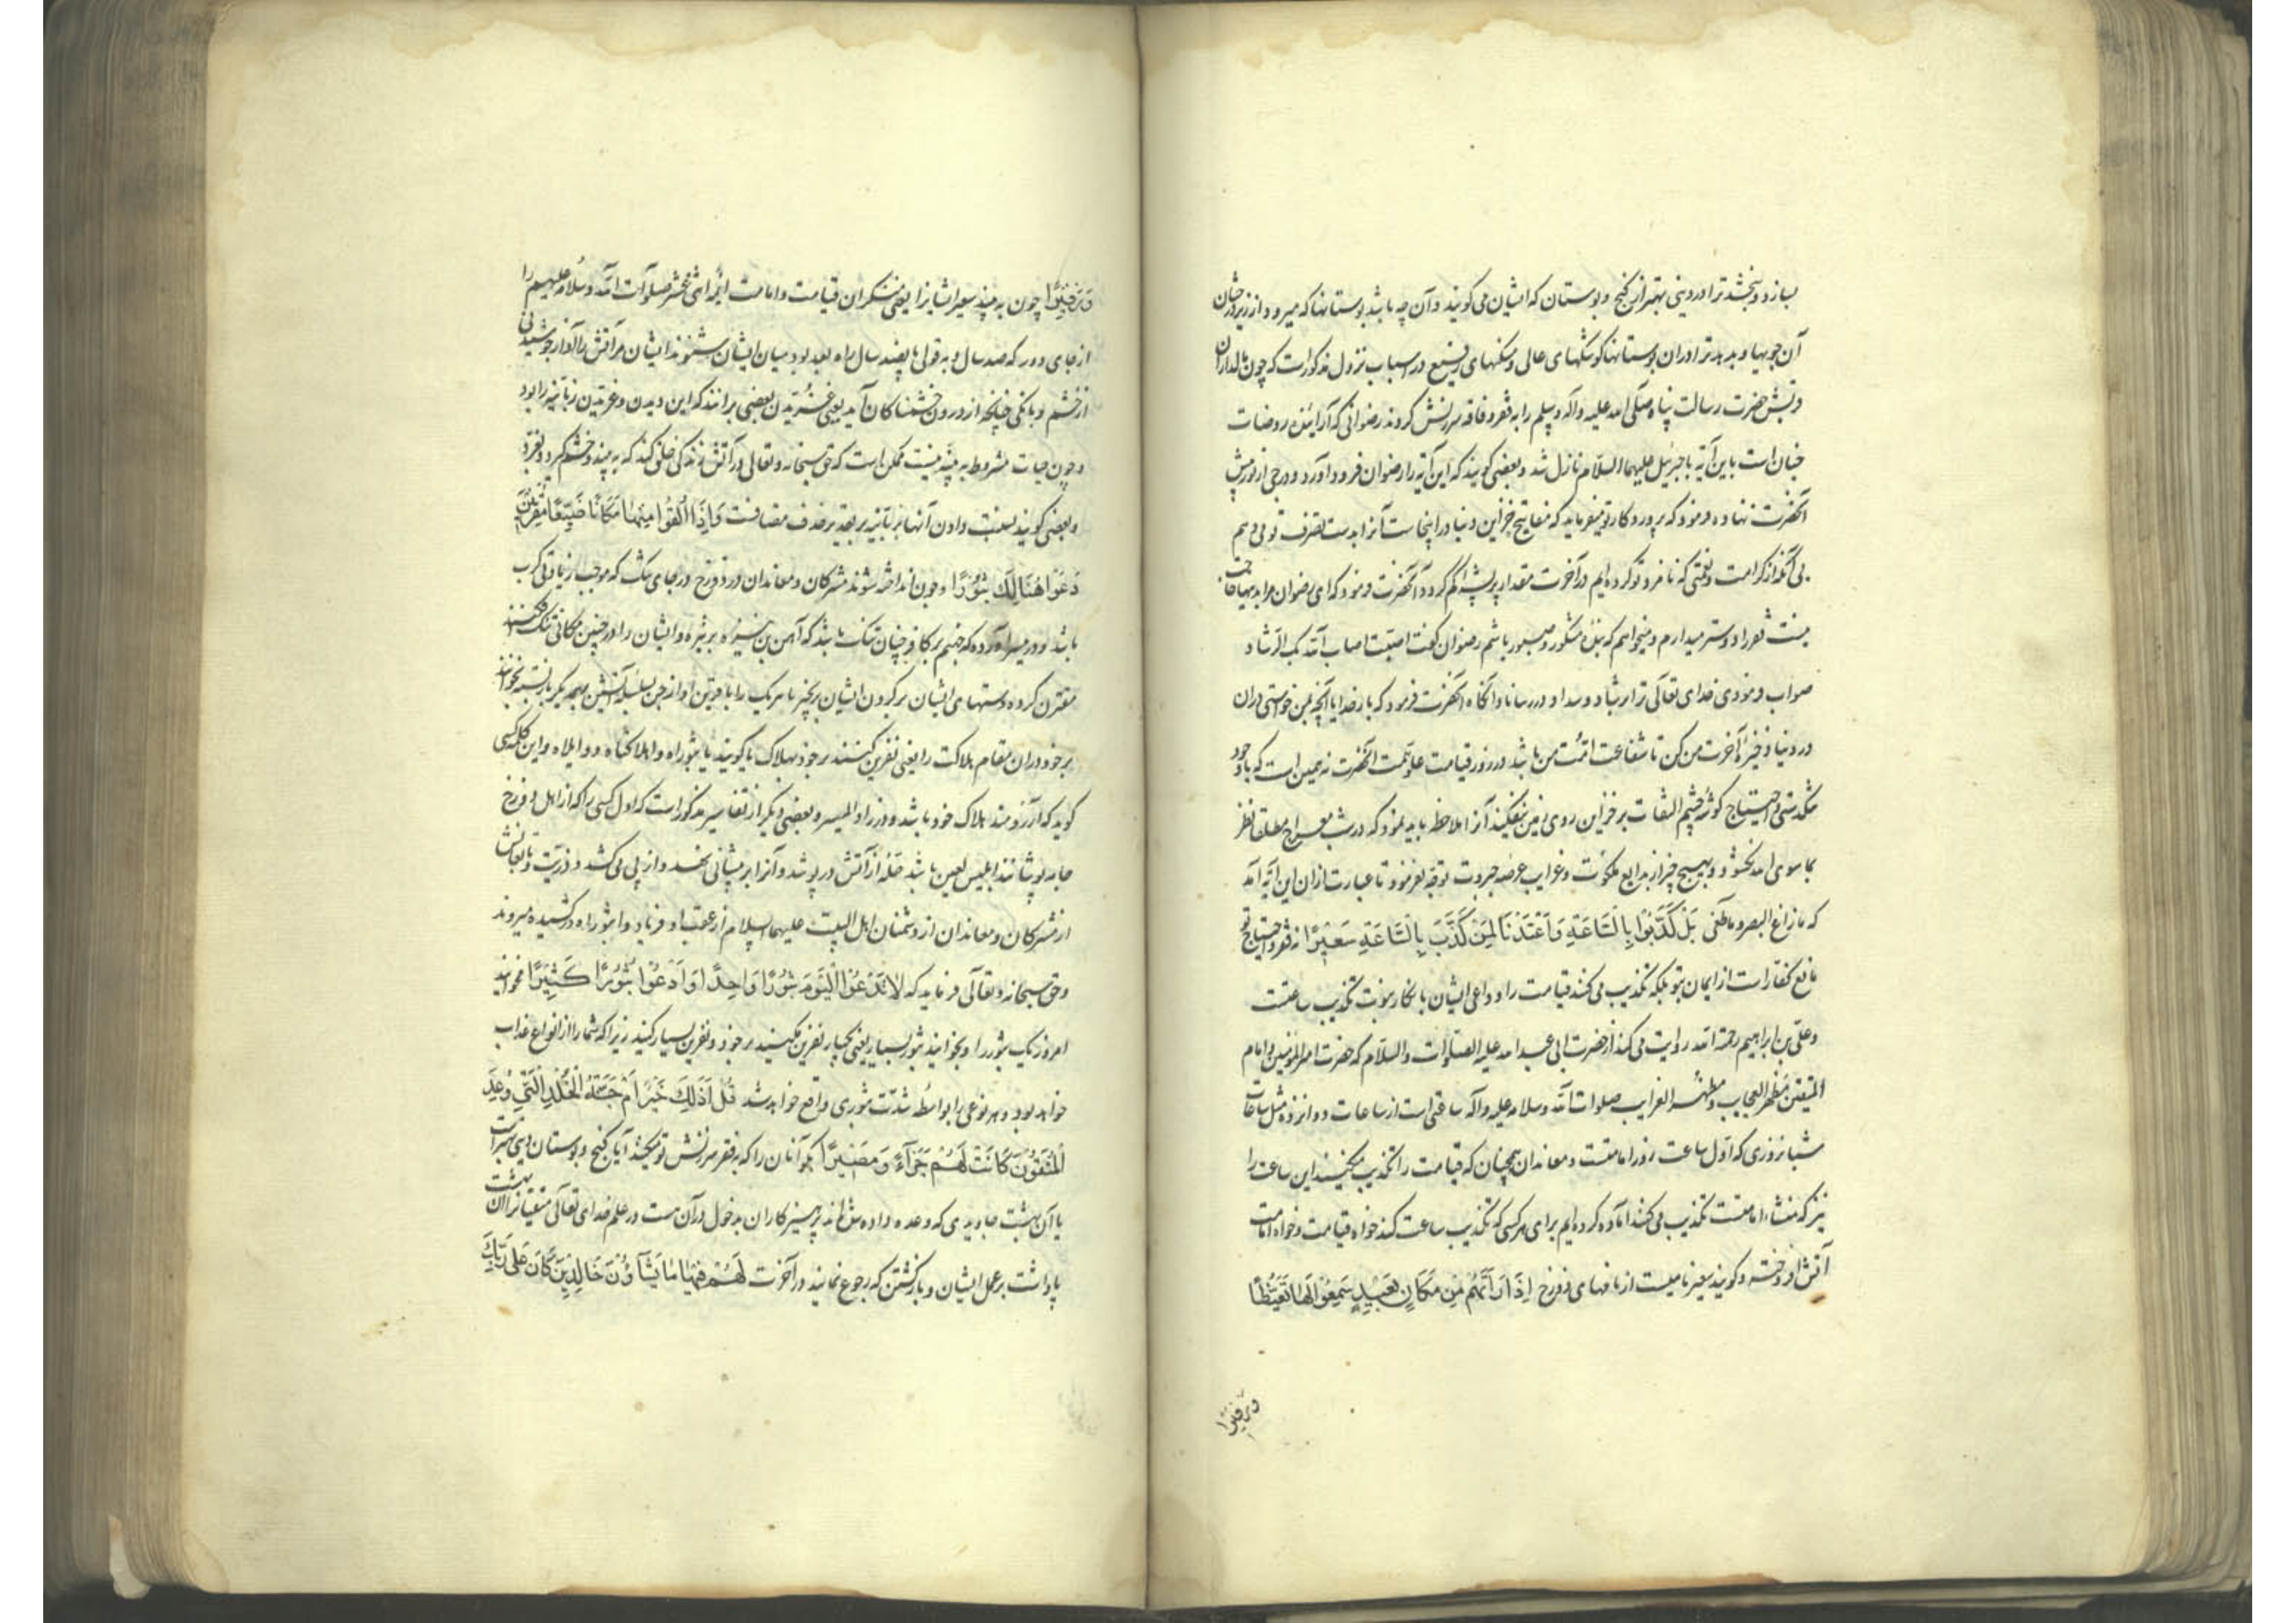 بسازد و بخشد ترا در دینی بهتر از گنج و بوستان که ایشان می گویند و آن چه باشد بوستانها که میرود از زیر درختان
آن جویها و بدهد ترا در ان بوستانها کوشکهای عالی و مسکنهای رفیع در اسباب نزول مذکور است که چون مالداران
قریش حضرت رسالت پناه صلی الله علیه و اله و سلم را به فقر و فاقه سرزنش کردند رضوانی که آراینده روضات
جنان است باین آیه با جبرئیل علیهما السلام نازل شد و بعضی گویند که این آیه را رضوان فرود آورد و درجی از نور پیش
آنحضرت نهاده فرمود که پروردگار تو میفرماید که مفاتیح خزاین دنیا در اینجاست آنرا بدست تصرف تو می دهیم
بی آنکه از کرامت و نعمتی که نامزد تو کرده ایم در آخرت مقدار پر پشه کم گردد آنحضرت فرمود که ای رضوان مرا بدینها حاجت
نیست فقر را دوستر میدارم و میخواهم که بنده شکور و صبور باشم رضوان گفت اصبت اصاب الله بک الرشاد
صواب فرمودی خدای تعالی ترا برشاد و سداد در رساناد آنگاه آنحضرت فرمود که بار خدایا آنچه بمن خواستی در ان
در دنیا ذخیره آخرت من کن تا شفاعت امت من باشد در روز قیامت علو همت آنحضرت نه همین است که با وجود
تنگدستی و احتیاج گوشه چشم التفات بر خزاین روی زمین نیفکند آنرا ملاحظه باید نمود که در شب معراج مطلقا نظر
بما سوی الله نگشود و بهیچ چیز از بدایع ملکوت و غرایب عرصه جبروت توجه نفرمود تا عبارت از ان این آیه آمد
که ما زاغ البصر و ما طغی بَلْ كَذَّبُوا بِالسَّاعَةِ وَاَعْتَدْنَا لِمَنْ كَذَّبَ بِالسَّاعَةِ سَعِيرًا نه فقر و احتیاج تو
مانع کفار است از ایمان بتو بلکه تکذیب می کنند قیامت را و داعی ایشان بانکار نبوت تکذیب ساعتست
و علی بن ابراهیم رحمة الله روایت می کند از حضرت ابی عبدالله علیه الصلوات و السلام که حضرت امیرالمؤمنین و امام
المتقین مظهر العجایب و مظهر الغرایب صلوات الله و سلامه علیه و آله ساعتی است از ساعات دوانزده مثل ساعات
شبانروزی که اول ساعت روز امامتست و معاندان همچنان که قیامت را تکذیب میکنند این ساعت را
نیز که منشاء امامتست تکذیب می کنند آماده کرده ایم برای هر کسی که تکذیب ساعت کند خواه قیامت و خواه امامت
آتش افروخته و گویند سعیر نامیست از نامهای دوزخ اِذَا رَاَتْهُمْ مِنْ مَكَانٍ بَعِيدٍ سَمِعُوا لَهَا تَغَيُّظًا
وزفیرا
وَزَفِيرًا چون به بیند سعیر ایشانرا یعنی منکران قیامت و امامت ائمه اثنی عشر صلوات الله و سلامه علیهم را
از جای دور که صد سال و به قولی پانصد سال راه بعد بود میان ایشان بشنوند ایشان مر آتش را آواز جوشیدنی
از خشم و بانگی چنانچه از درون خشمناکان آید یعنی غریدن بعضی برانند که این دیدن و غریدن زبانیه را بود
و چون حیات مشروط به بنیه نیست ممکن است که حق سبحانه و تعالی در آتش زندگی خلق کند که به بیند و خشم گیرد و بغرد
و بعضی گویند نسبت دادن آنها بزبانیه بر تقدیر حذف مضافست وَاِذَا اُلْقُوا مِنْهَا مَكَانًا ضَيِّقًا مُقَرَّنِينَ
دَعَوْا هُنَالِكَ ثُبُورًا و چون انداخته شوند مشرکان و معاندان در دوزخ در جای تنگ که موجب زیادتی کرب
باشد و در میسر آورده که جهنم بر کافر چنان تنگ باشد که آهن بن نیزه بر نیزه و ایشان را در چنین مکانی تنگ افکنند
مقترن کرده دستهای ایشان بر گردن ایشان بزنجیر یا هر یک را با قرین او از جن بسلسله آتشین بهمدیگر باز بسته بخوانند
بر خود در ان مقام هلاکت را یعنی نفرین کنند بر خود بهلاک یا گویند یا ثبوراه و اهلاکتاه و واویلاه و این کلمه کسی
گوید که آرزومند هلاک خود باشد و در زاد المسیر و بعضی دیگر از تفاسیر مذکور است که اول کسی را که از اهل دوزخ
جامه پوشانند ابلیس لعین باشد حله از آتش در پوشد و آنرا بر پیشانی نهد و از پی می کشد و ذریت و تابعانش
از مشرکان و معاندان از دشمنان اهل البیت علیهم السلام از عقب او فریاد واثبوراه درکشیده میروند
و حق سبحانه و تعالی فرماید که لَا تَدْعُوا الْيَوْمَ ثُبُورًا وَاحِدًا وَادْعُوا ثُبُورًا كَثِيرًا مخوانید
امروز یک ثبور را و بخوانید ثبور بسیار یعنی یکبار نفرین مکنید بر خود و نفرین بسیار کنید زیرا که شما را از انواع عذاب
خواهد بود و هر نوعی را بواسطه شدت ثبوری واقع خواهد شد قُلْ اَذَلِكَ خَيْرٌ اَمْ جَنَّةُ الْخُلْدِ الَّتِي وُعِدَ
الْمُتَّقُونَ كَانَتْ لَهُمْ جَزَآءً وَمَصِيرًا بگو آنان را که بفقر سرزنش تو میکنند آیا گنج و بوستان دنیی بهتر است
یا آن بهشت جاویدی که وعده داده شده اند پرهیزکاران بدخول در آن هست در علم خدای تعالی متقیانرا آن بهشت
پاداشت بر عمل ایشان و بازگشتن که رجوع نمایند در آخرت لَهُمْ فِيهَا مَا يَشَآؤُنَ خَالِدِينَ كَانَ عَلَى رَبِّكَ